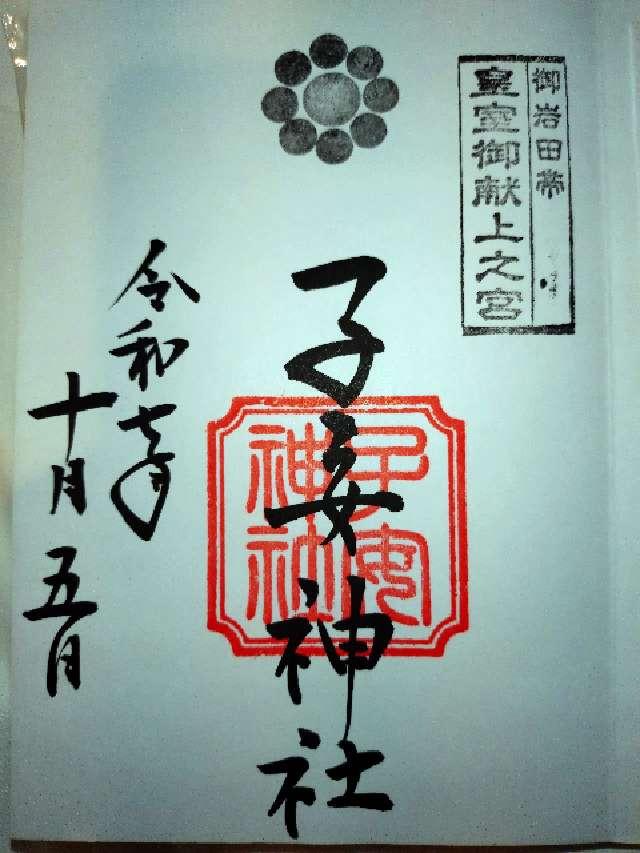 御岩田帯
皇室御献上之宮
子安神社
子安
神社
令和七年
十月五日